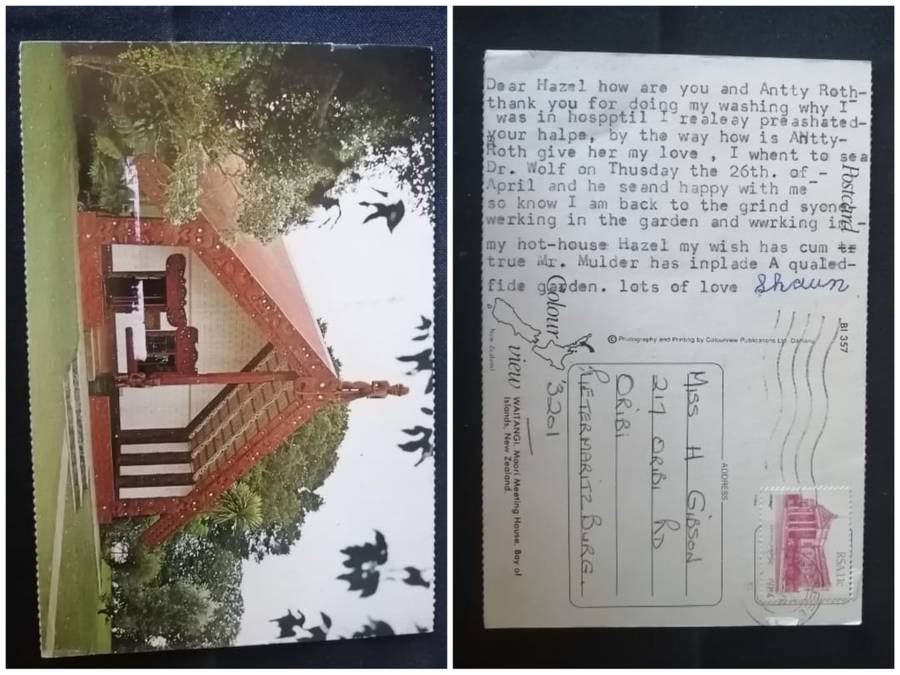 Dear Hazel how are you and Antty Roth-
thank you for doing my washing why I
was in hospptil I realeay preashated-
your halpe, by the way how is Antty-
Roth give her my love , I whent to sea
Dr. Wolf on Thusday the 26th. of -
April and he seand happy with me
so know I am back to the grind syoned
werking in the garden and wwrking in -
my hot-house Hazel my wish has cum
true Mr. Mulder has inplade A qualed-
fide garden. lots of love Shaun
Postcard
Colour view
New Zealand
BI 357
© Photography and Printing by Colourview Publications Ltd.
WAITANGI. Maori Meeting House, Bay of
Islands, New Zealand.
ADDRESS
MISS H GIBSON
217 ORIBI RD
ORIBI
PIETERMARITZBURG.
3201
RSA 11c